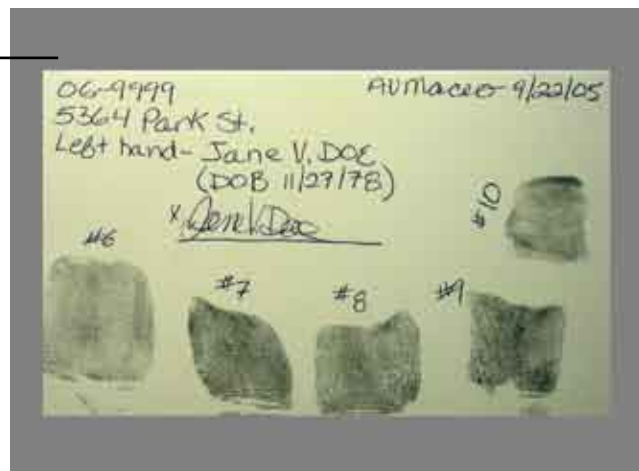 06-9999 AVMaceo 9/22/05
5364 Park St.
Left hand- Jane V. DOE
(DOB 11/27/78)
x Jane V. Doe
#10
#6 #7 #8 #9